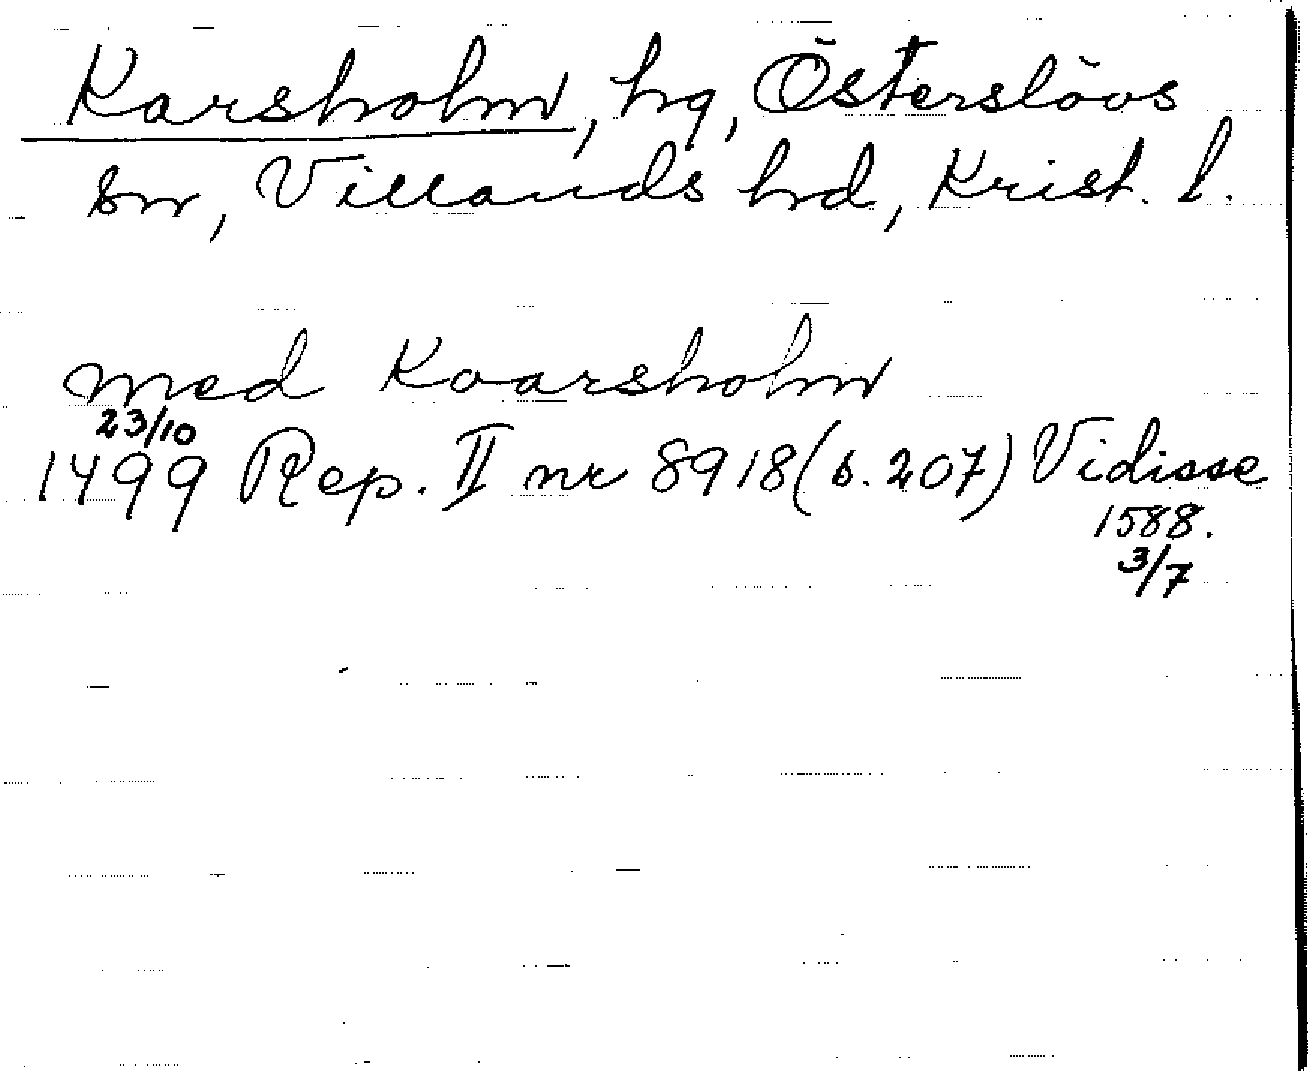 Karsholm, hg, Österslövs
sn, Villands hd, Krist. l.
med Kaarsholm
23/10
1499 Rep. II nr 8918 (s. 207) Vidisse
1588.
3/7